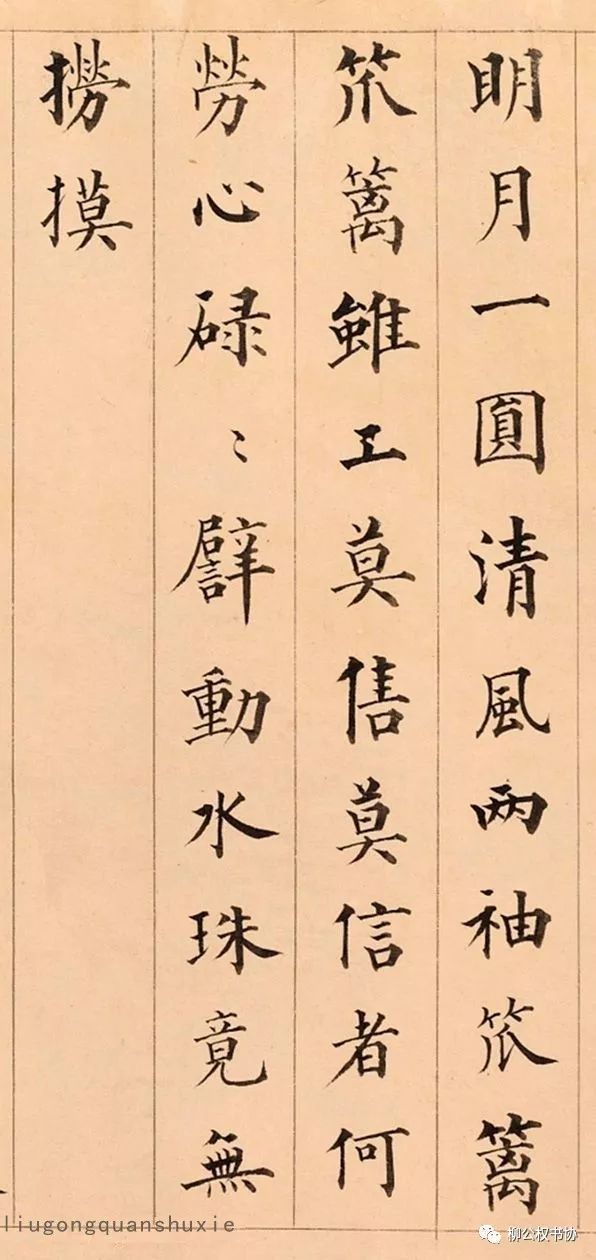 明月一圓清風两袖笊籬
笊籬雖工莫售莫信者何
勞心碌〻譬動水珠竟無
撈摸
liugongquanshuxie
柳公权书协